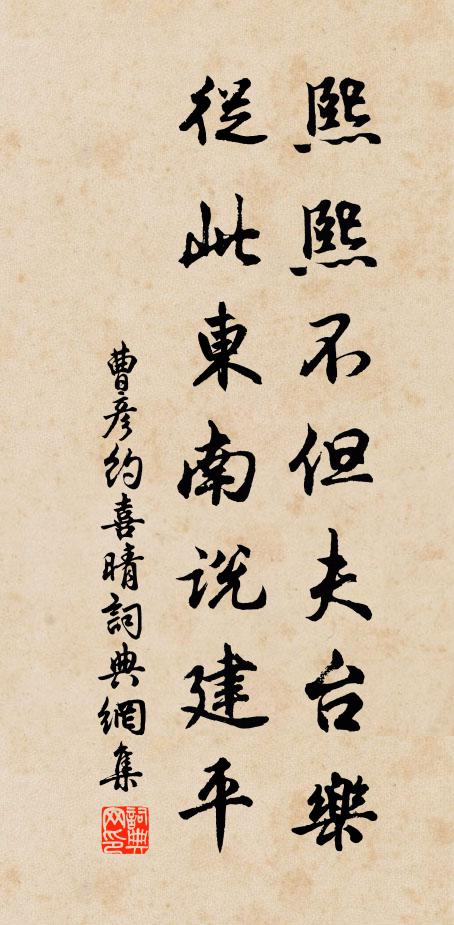 熙熙不但夫台樂
從此東南説建平
曹彦約喜晴詞典網集
詞典网印